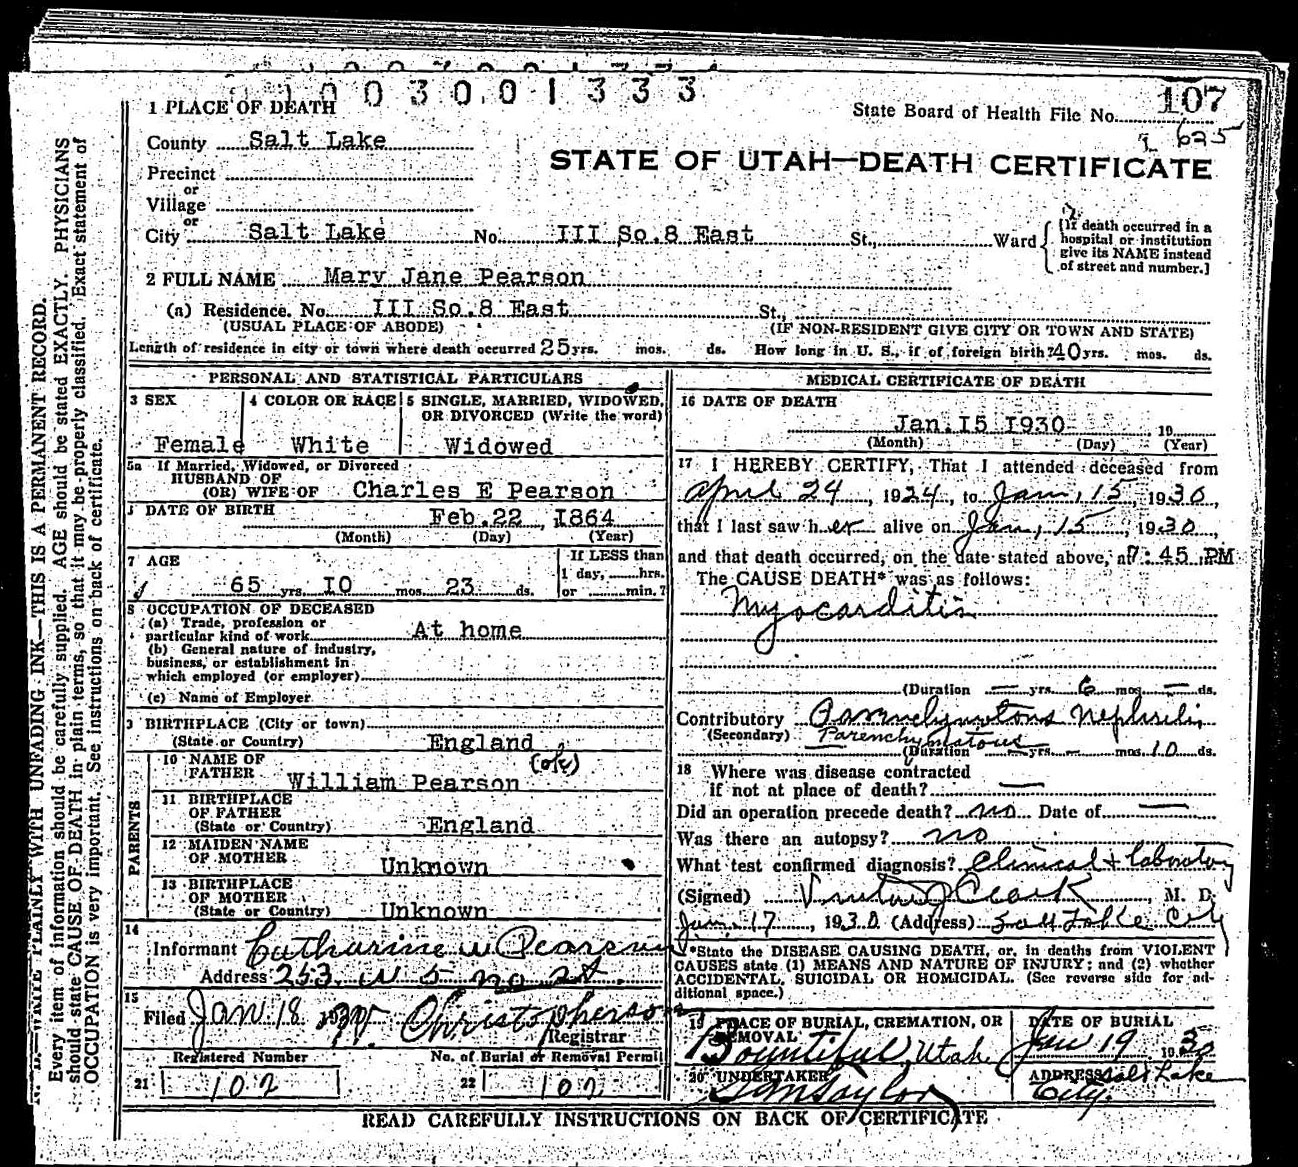 003001333
State Board of Health File No. 107
625
1 PLACE OF DEATH
County Salt Lake
STATE OF UTAH—DEATH CERTIFICATE
Precinct
or
Village
or
City Salt Lake No. III So.8 East St., Ward
[If death occurred in a
hospital or institution
give its NAME instead
of street and number.]
2 FULL NAME Mary Jane Pearson
(a) Residence. No. III So.8 East St.,
(USUAL PLACE OF ABODE) (IF NON-RESIDENT GIVE CITY OR TOWN AND STATE)
Length of residence in city or town where death occurred 25 yrs. mos. ds. How long in U. S., if of foreign birth? 40 yrs. mos. ds.
PERSONAL AND STATISTICAL PARTICULARS
3 SEX
Female
4 COLOR OR RACE
White
5 SINGLE, MARRIED, WIDOWED,
OR DIVORCED (Write the word)
Widowed
5a If Married, Widowed, or Divorced
HUSBAND OF
(OR) WIFE OF Charles E Pearson
DATE OF BIRTH Feb.22, 1864
(Month) (Day) (Year)
7 AGE
65 yrs. IO mos. 23 ds.
If LESS than
1 day, hrs.
or min.?
8 OCCUPATION OF DECEASED
(a) Trade, profession or
particular kind of work At home
(b) General nature of industry,
business, or establishment in
which employed (or employer)
(c) Name of Employer
9 BIRTHPLACE (City or town)
(State or Country) England
PARENTS
10 NAME OF
FATHER William Pearson (ok)
11 BIRTHPLACE
OF FATHER
(State or Country) England
12 MAIDEN NAME
OF MOTHER Unknown
13 BIRTHPLACE
OF MOTHER
(State or Country) Unknown
14
Informant Catharine W Pearson
Address 253 W 5 no 2st.
15
Filed Jan. 18 1930 W. Christopherson
Registrar
Registered Number No. of Burial or Removal Permit
21 102 22 102
MEDICAL CERTIFICATE OF DEATH
16 DATE OF DEATH
Jan.I5 I930 19
(Month) (Day) (Year)
17 I HEREBY CERTIFY, That I attended deceased from
April 24, 1924, to Jan, 15 1930,
that I last saw her alive on Jan, 15, 1930,
and that death occurred, on the date stated above, at 7:45 PM
The CAUSE DEATH* was as follows:
Myocarditis
(Duration — yrs. 6 mos. — ds.
Contributory Parenchymatous Nephritis
(Secondary) Parenchymatous
(Duration — yrs. — mos. 10 ds.
18 Where was disease contracted
if not at place of death? —
Did an operation precede death? no Date of —
Was there an autopsy? no
What test confirmed diagnosis? Clinical + laboratory
(Signed) Clark, M. D.
Jan. 17, 1930 (Address) Salt Lake City
*State the DISEASE CAUSING DEATH, or, in deaths from VIOLENT
CAUSES state (1) MEANS AND NATURE OF INJURY; and (2) whether
ACCIDENTAL, SUICIDAL OR HOMICIDAL. (See reverse side for ad-
ditional space.)
19 PLACE OF BURIAL, CREMATION, OR
REMOVAL
Bountiful, Utah
DATE OF BURIAL
Jan 19 1930
20 UNDERTAKER
S M Taylor
ADDRESS Salt Lake
City.
READ CAREFULLY INSTRUCTIONS ON BACK OF CERTIFICATE
N. B.—WRITE PLAINLY WITH UNFADING INK—THIS IS A PERMANENT RECORD.
Every item of information should be carefully supplied. AGE should be stated EXACTLY. PHYSICIANS
should state CAUSE OF DEATH in plain terms, so that it may be properly classified. Exact statement of
OCCUPATION is very important. See instructions on back of certificate.